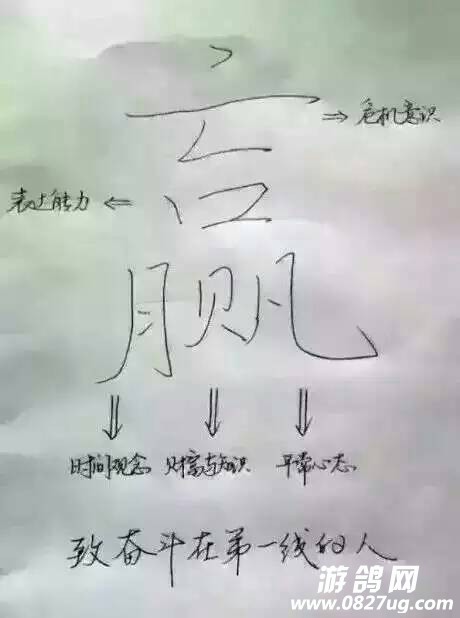 赢
危机意识
表达能力
时间观念 财富与知识 平常心态
致奋斗在第一线的人
游鸽网
www.0827ug.com